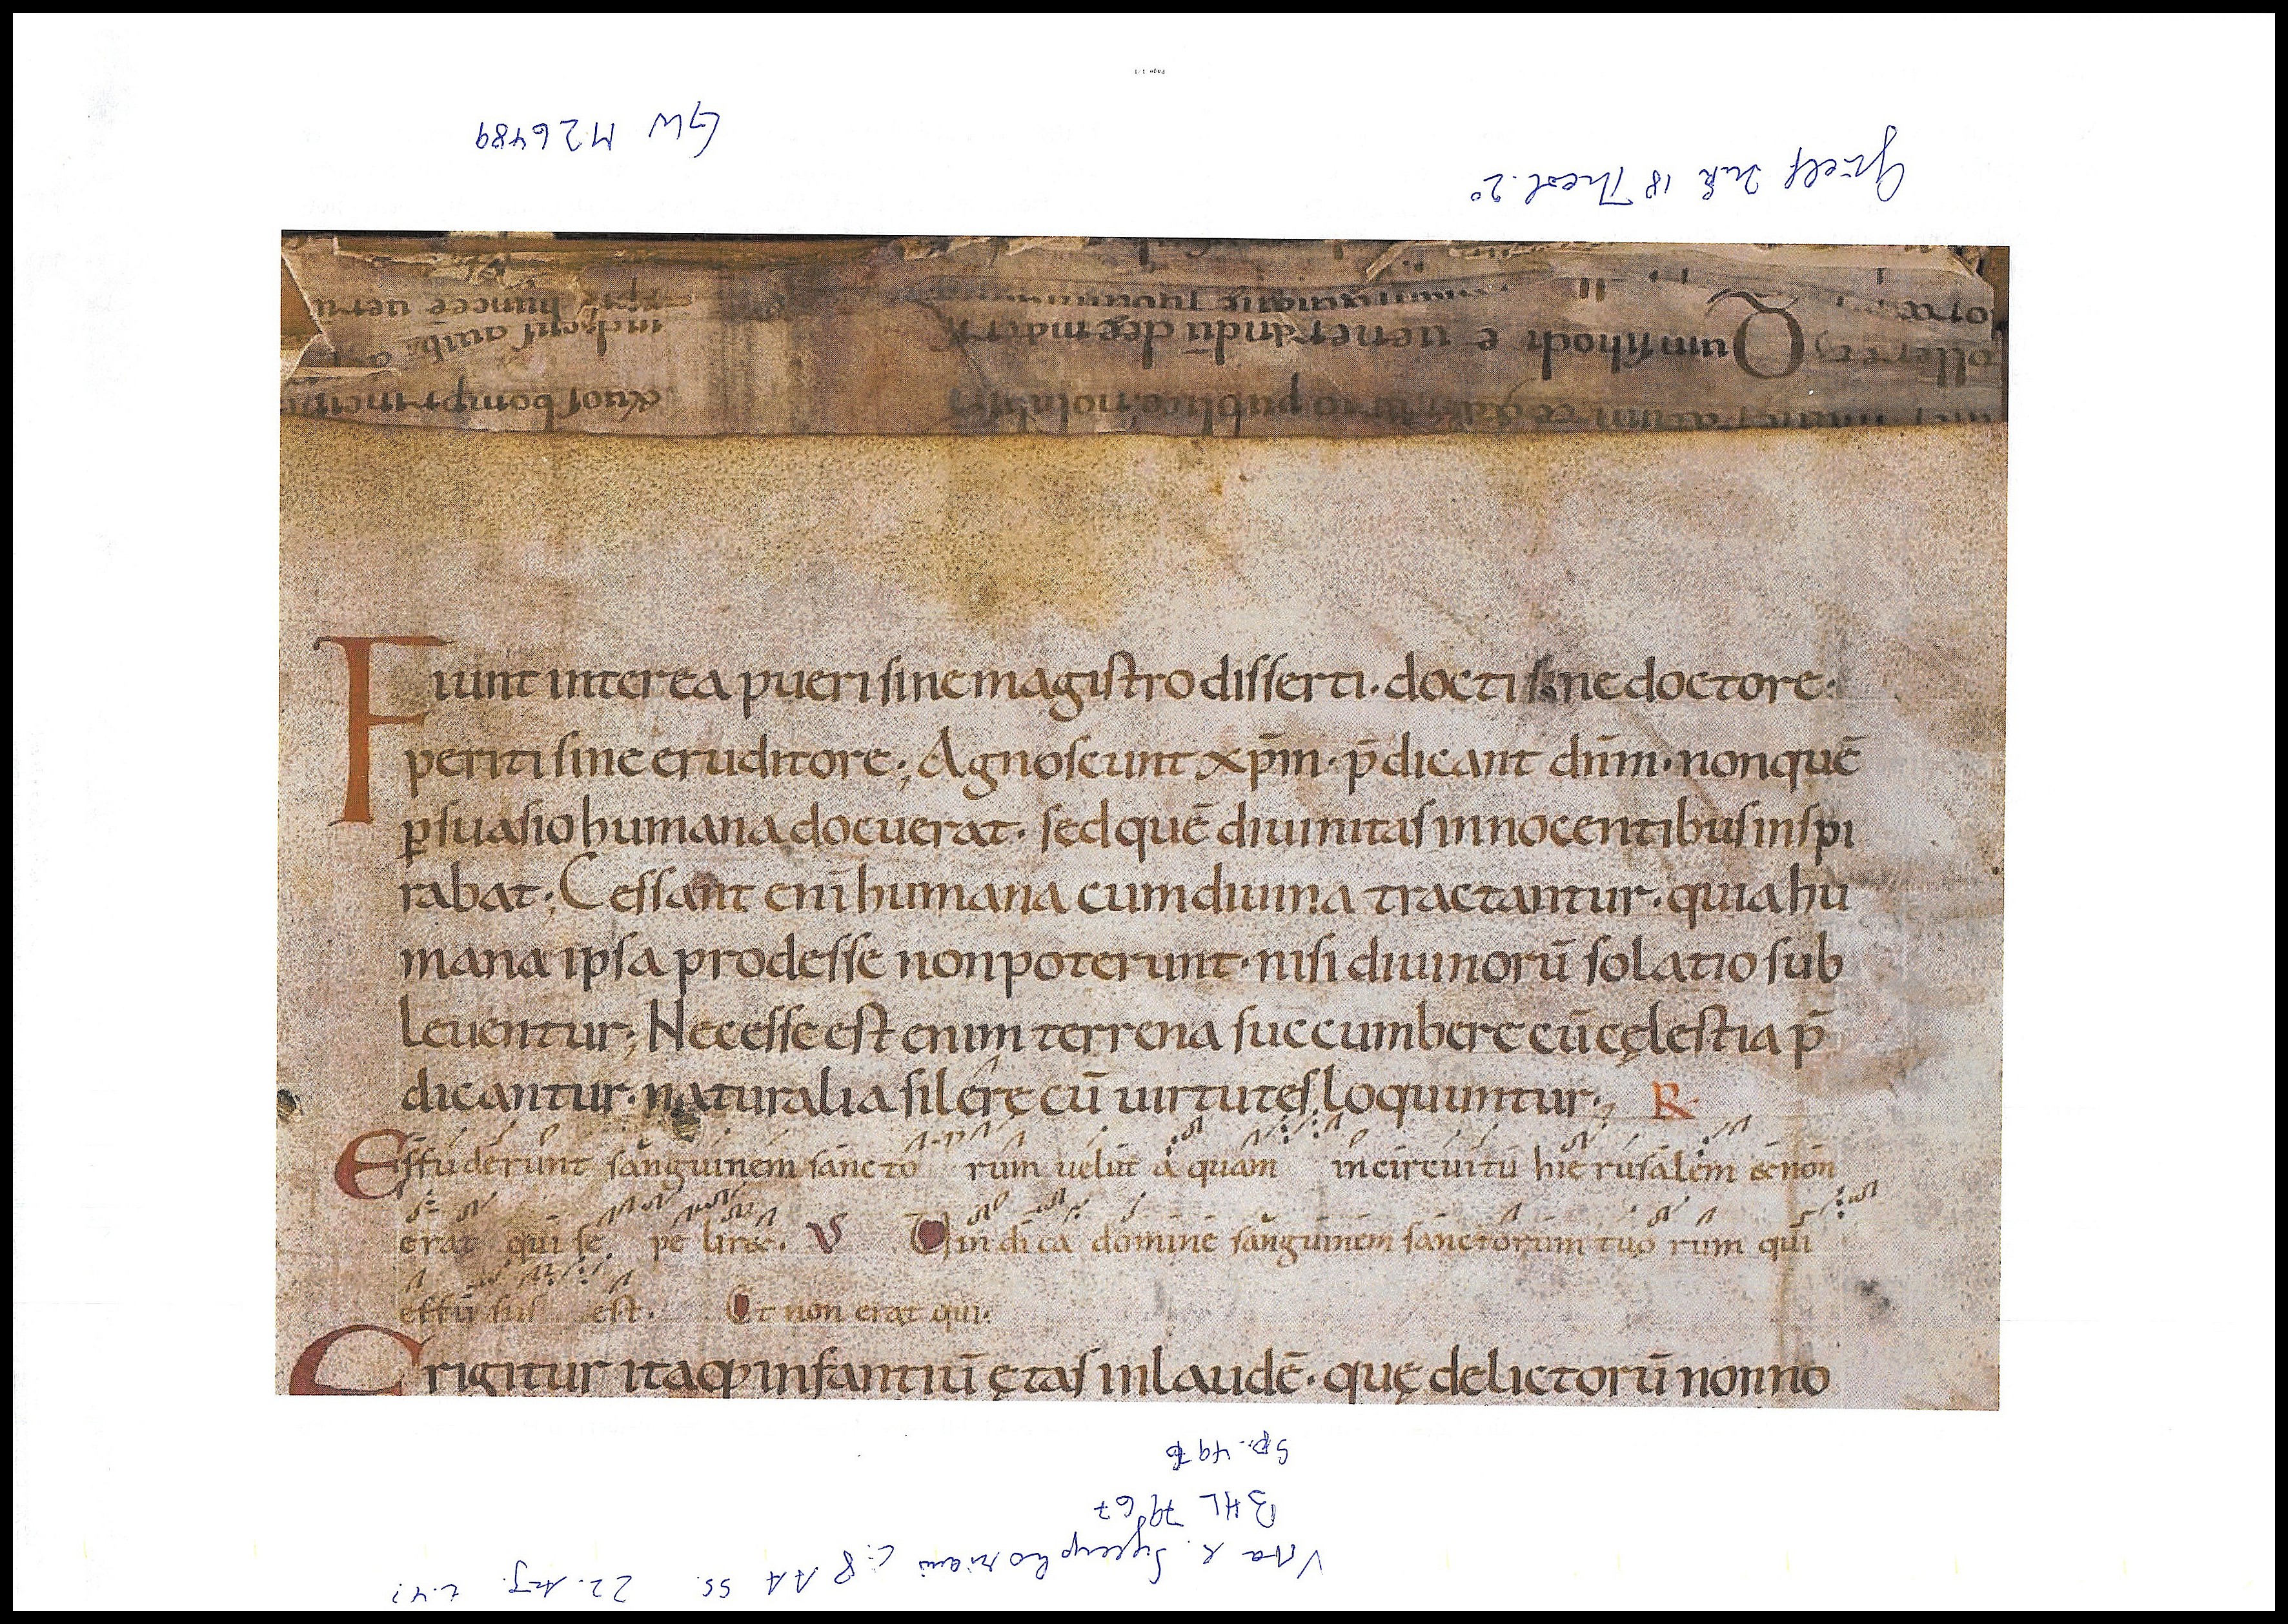 Page 1/1
GW M26489
Guelf Ink 18 Theol. 2°
exp̄se huncce ueru
inchoat quib;
&uos bom principi
Q um sihodie ueneran dū dee mater
publice
Fiunt interea pueri sine magistro disserti · docti sine doctore ·
periti sine eruditore ; Agnoscunt xp̄m · p̄dicant dn̄m · non quē
ꝑsuasio humana docuerat · sed quē diuinitas innocentibus inspi
rabat ; Cessant enī humana cum diuina tractantur · quia hu
mana ipsa prodesse non poterunt · nisi diuinorū solatio sub
leuentur ; Necesse est enim terrena succumbere cū cęlestia p̄
dicantur · naturalia silere cū uirtutes loquuntur ; R
Effuderunt sanguinem sancto rum uelut a quam in circuitu hierusalem & non
erat qui se pe lir&. V Uindica domine sanguinem sanctorum tuo rum qui
effu sus est. Et non erat qui.
Erigitur itaq; infantiū ętas in laudē · quę delictorū non no
Sp. 497b
BHL 7967
Vita s. Symphoriani c. 8 AA SS. 22. Aug. t. 4